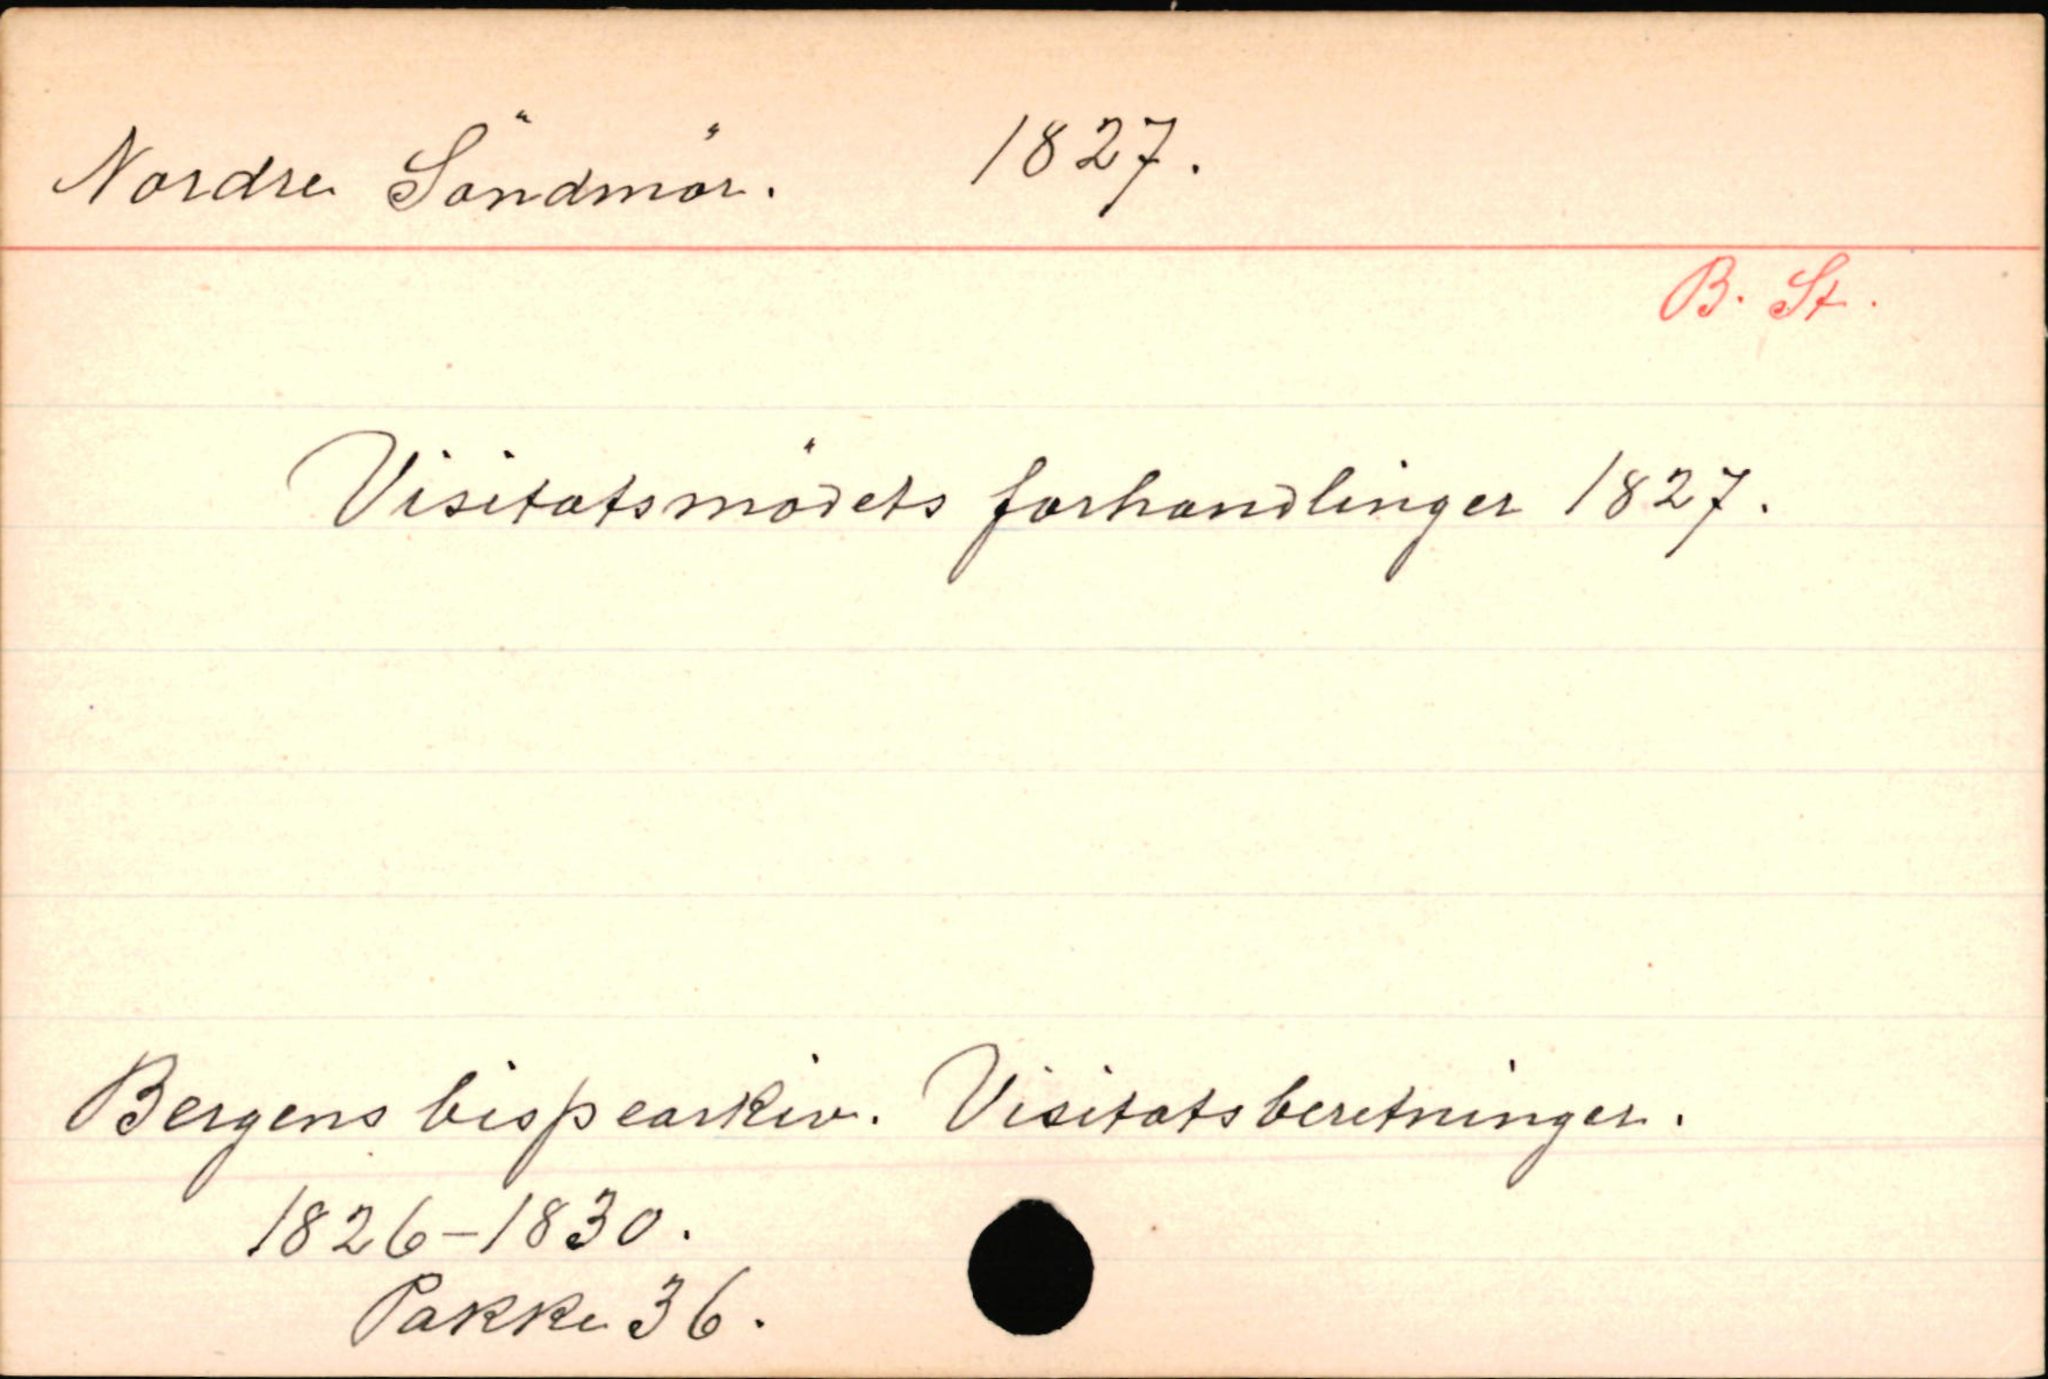 Nordre Söndmör. 1827.
B. St.
Visitatsmödets forhandlinger 1827.
Bergens bispearkiv. Visitatsberetninger.
1826-1830.
Pakke 36.